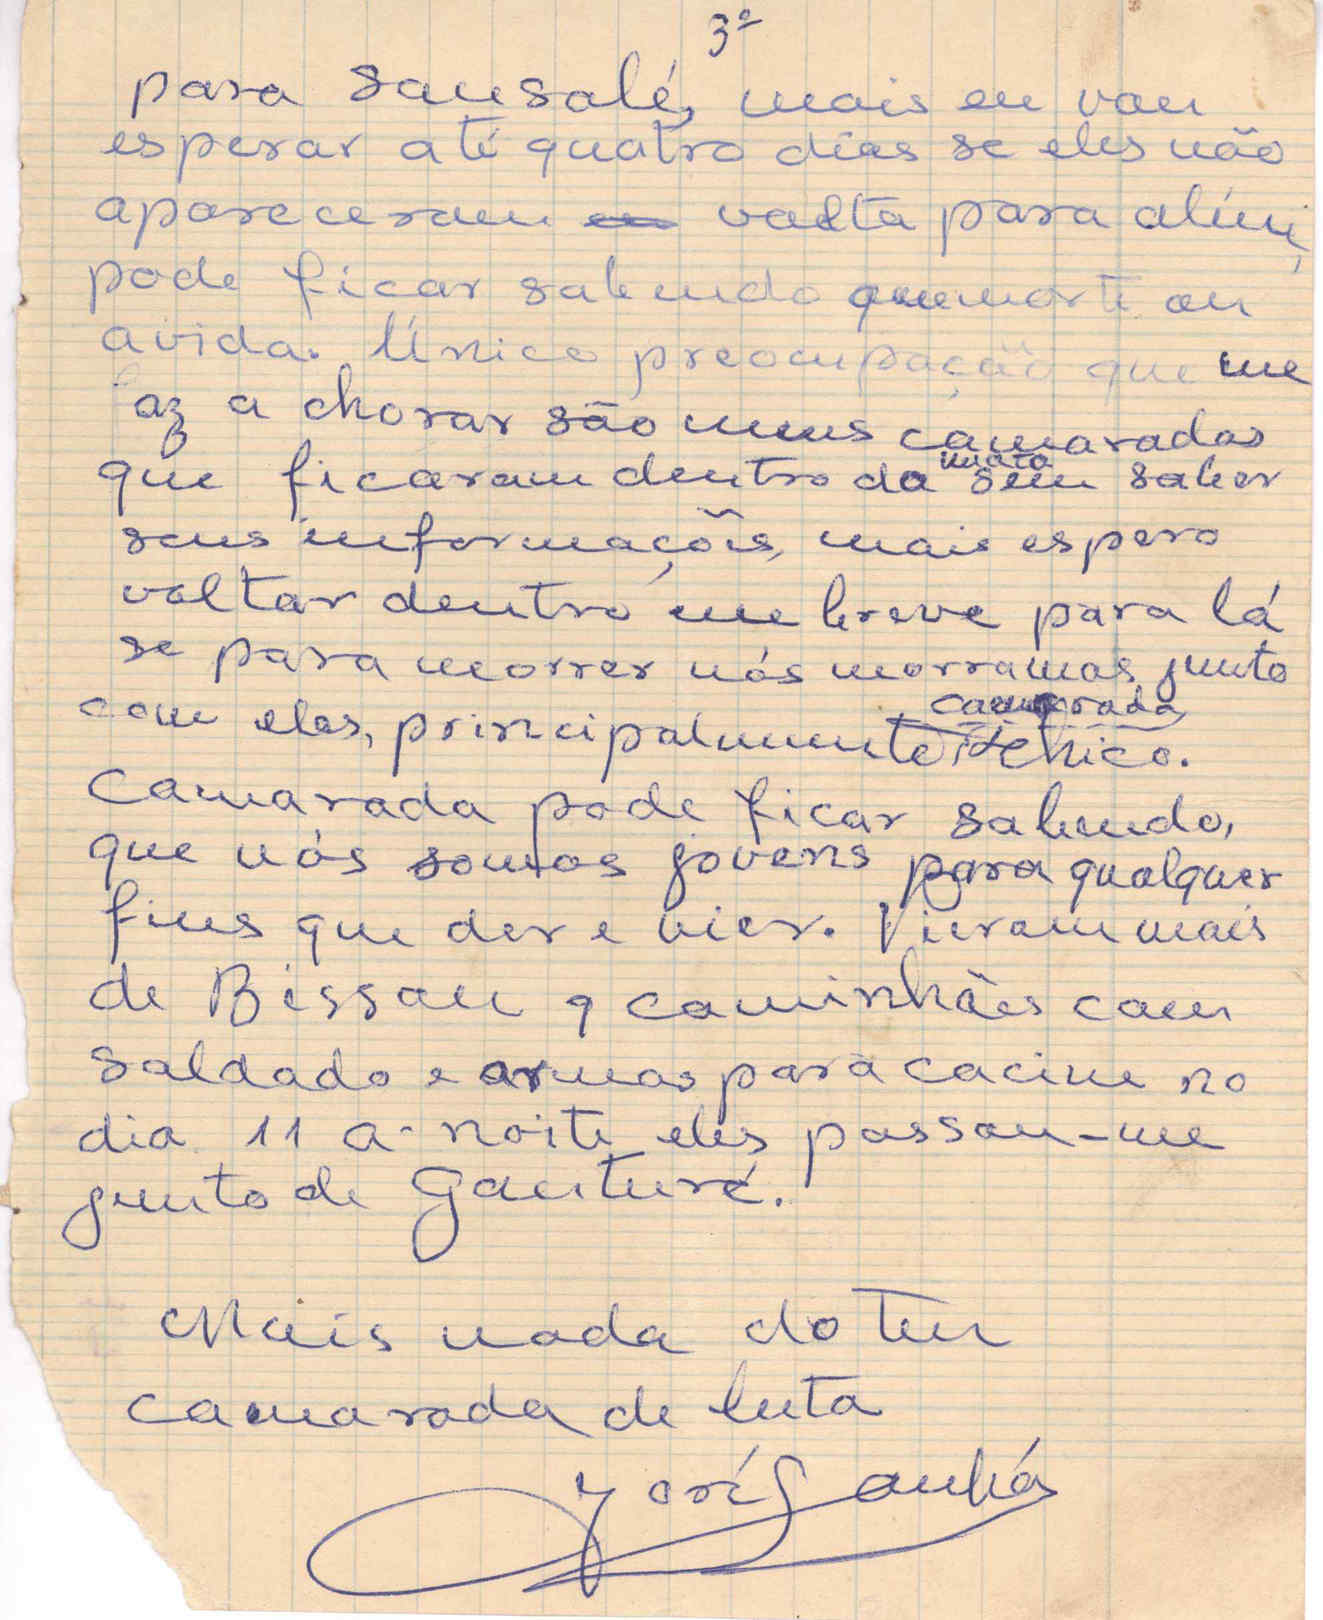 3º
para Sansalé, mais eu vou
esperar até quatro dias se eles não
apareceram volta para
pode ficar sabendo que morte ou
a vida. Único preocupação que me
az a chorar são meus camaradas
que ficaram dentro da mata sem saber
seus informações, mais espero
voltar dentro me breve para lá
se para morrer nós morramos junto
com eles, principalmente camarada Chico.
Camarada pode ficar sabendo,
que nós somos jovens para qualquer
fins que der e vier. Vieram mais
de Bissau 9 caminhões com
saldado e armas para cacine no
dia 11 a noite eles passau-me
junto de Ganturé.
Mais nada do teu
camarada de luta
José Sanhá